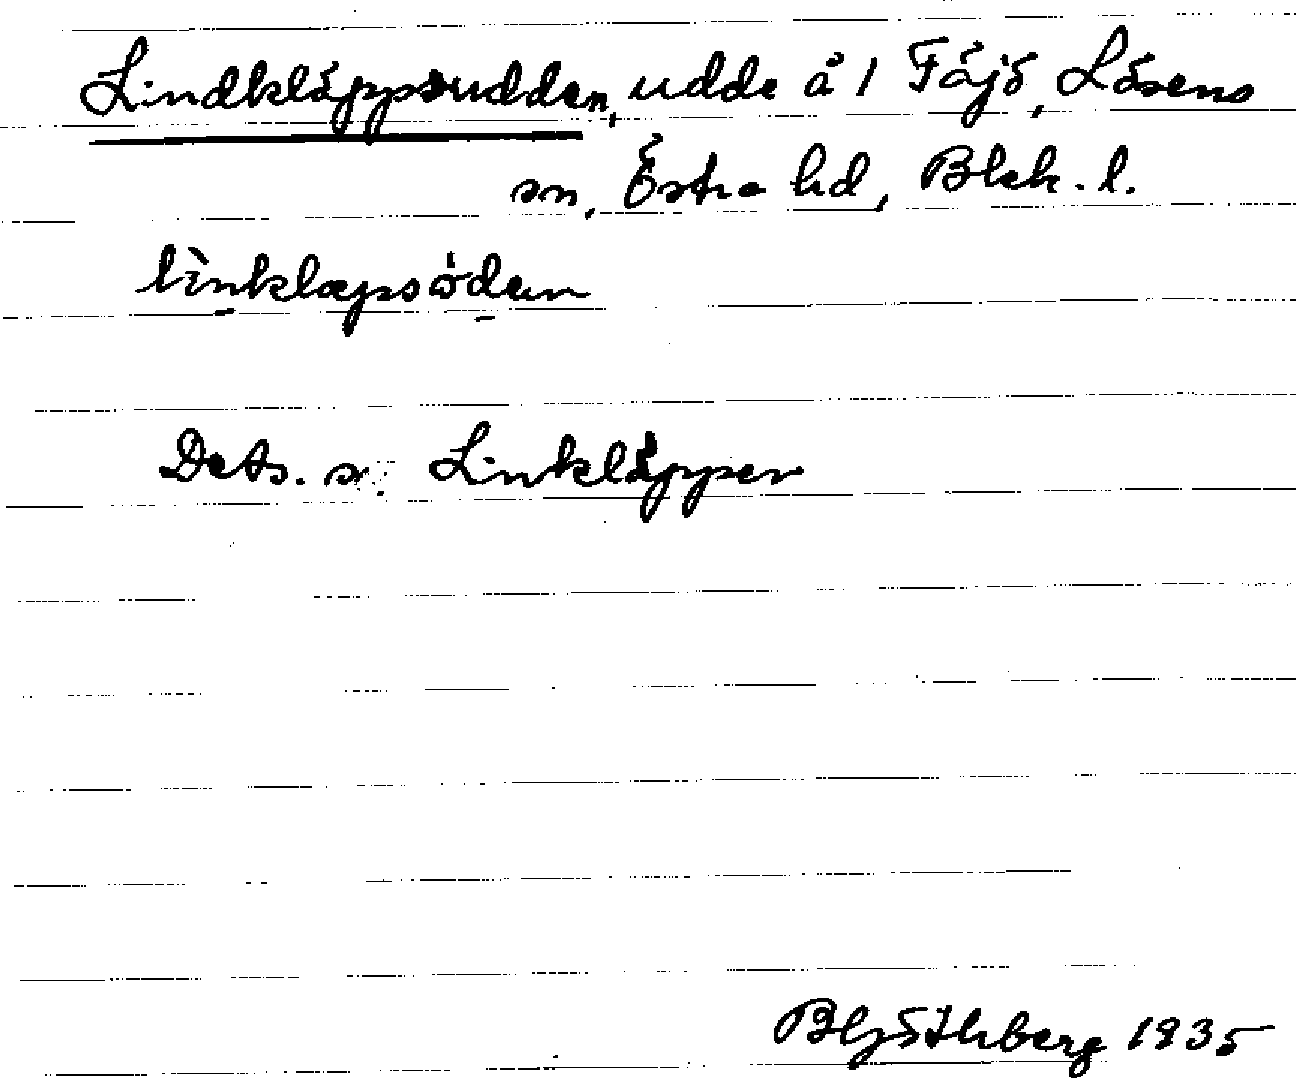 Lindkläppsudden, udde å 1 Fäjö, Lösens
sn, Östra hd, Blek. l.
linklæpsödan
Dets. s. Linkläppen